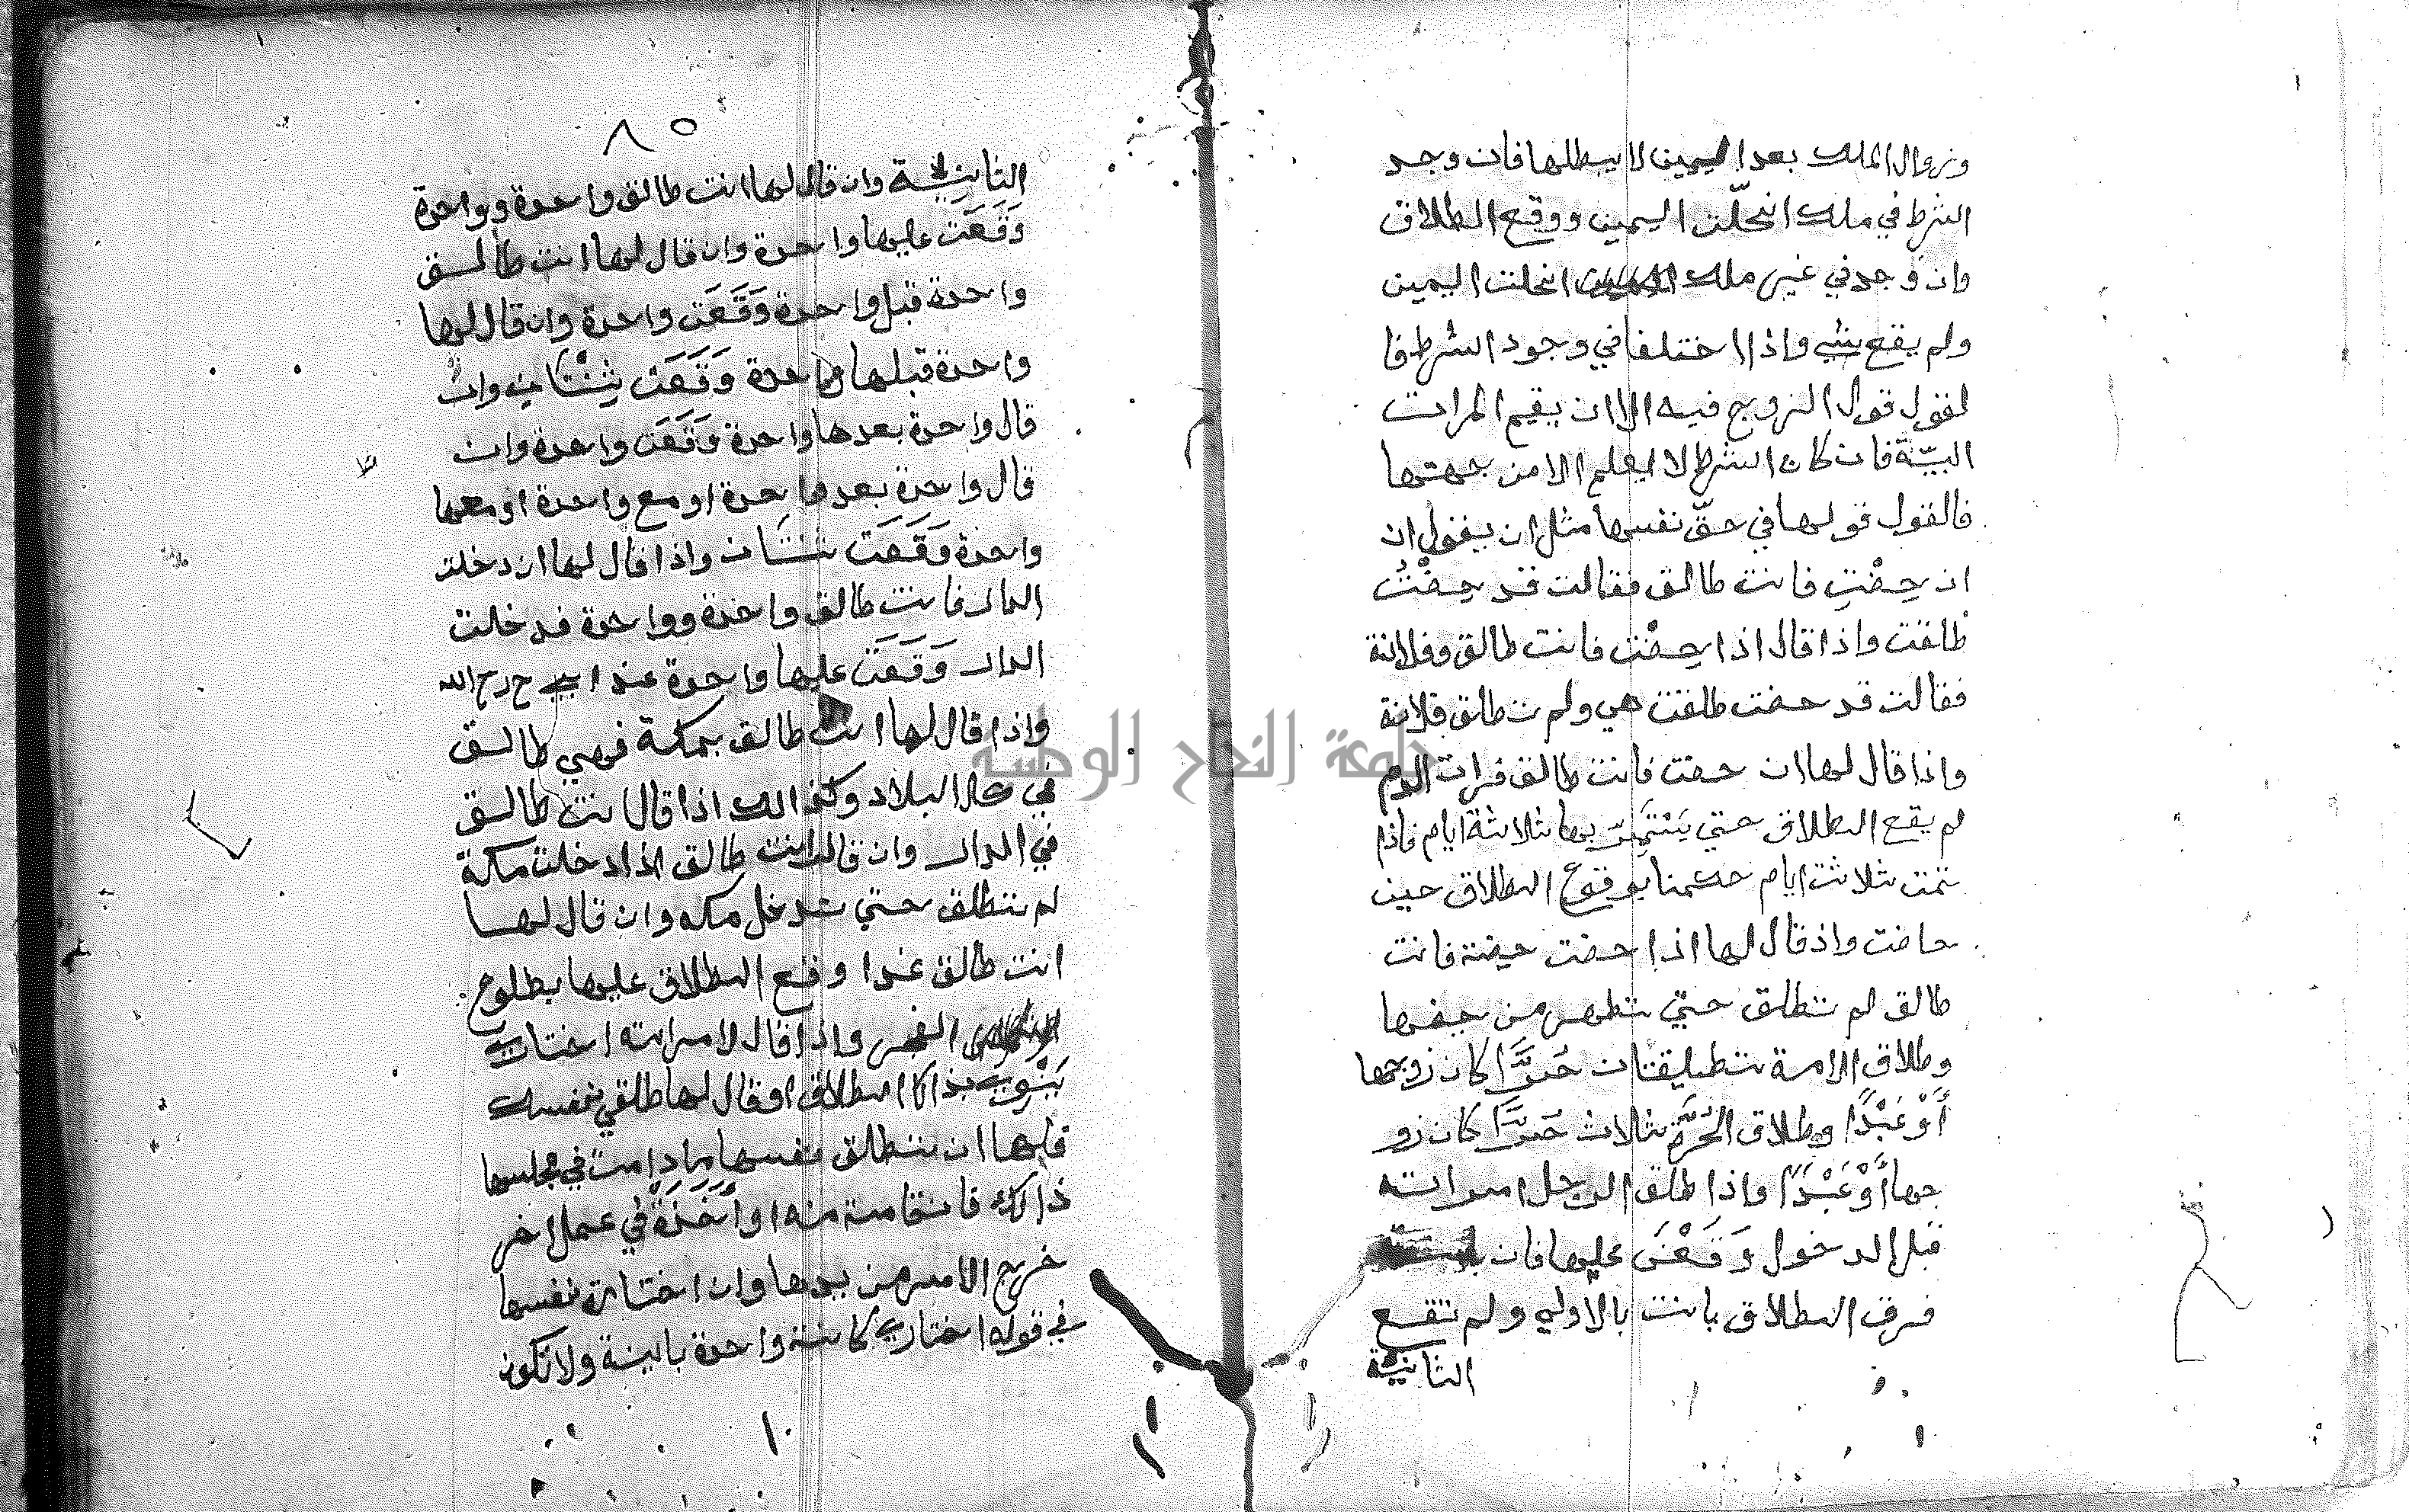 وزوال الملك بعد اليمين لا يبطلها فان وجد
الشرط في ملك انحلّت اليمين ووقع الطلاق
وان وجد في غير ملك انحلت اليمين
ولم يقع شي واذا اختلفا في وجود الشرط فا
لقول قول الزوج فيه الا ان يقيم المرات
البيّة فان كان الشرط لا يعلم الا من جهتها
فالقول قولها في حقّ نفسها مثل ان يقول ان
ان حِضْتِ فانت طالق فقالت قد حِضْتُ
طلقت واذا قال اذا حِضْت فانت طالق وفلانة
فقالت قد حضت طلقت هي ولم تطلق فلانة
واذا قال لها ان حضت فانت طالق فرات الدم
لم يقع الطلاق حتي يَسْتَمِرّ بها ثلاثة ايام فاذا
تمت ثلاثت ايام حكمنا بوقوع الطلاق حين
حاضت واذ قال لها اذا حضت حيضة فانت
طالق لم تطلق حتي تطهر من حيضها
وطلاق الامة تطليقتان حُرًّا كان زوجها
أَوْ عَبْدًا وطلاق الحُرَّة ثالاث حُرًّا كان زو
جها أَوْ عَبْدًا واذا طلق الرجل امراته
قبل الدخول وَقَعْنَ عليها فان
فرق الطلاق بانت بالاولي ولم تقع
الثانية
٨٥
الثانية وان قال لها انت طالق واحدة وواحدة
وَقَعَت عليها واحدة وان قال لها انت طالق
واحدة قبل واحدة وَقَعَت واحدة وان قال لها
واحدة قبلها واحدة وَقَعَت ثِنْتَان وان
قال واحدة بعدها واحدة وَقَعَت واحدة وان
قال واحدة بعد واحدة او مع واحدة او معها
واحدة وَقَعَت ثنتان واذا قال لها ان دخلت
الدار فانت طالق واحدة وواحدة فدخلت
الدار وَقَعَت عليها واحدة عند ابي ح رح الله
واذا قال لها انت طالق بمكة فهي طالق
في كل البلاد وكذالك اذا قال انت طالق
في الدار وان قال انت طالق اذا دخلت مكة
لم تتطلق حتي تدخل مكه وان قال لها
انت طالق غدا وقع الطلاق عليها بطلوع
الفجر واذا قال لامراته اختاري
يَنْوي بذالك الطلاق او قال لها طلقي نفسك
فلها ان تتطلق نفسها ما دامت في مجلسها
ذالك فان قامت منه او أَخَذَة في عمل اخر
خرج الامر من يدها وان اختارة نفسها
في قوله اختاري كانت واحدة باينة ولا تكون
جامعة النجاح الوطنية